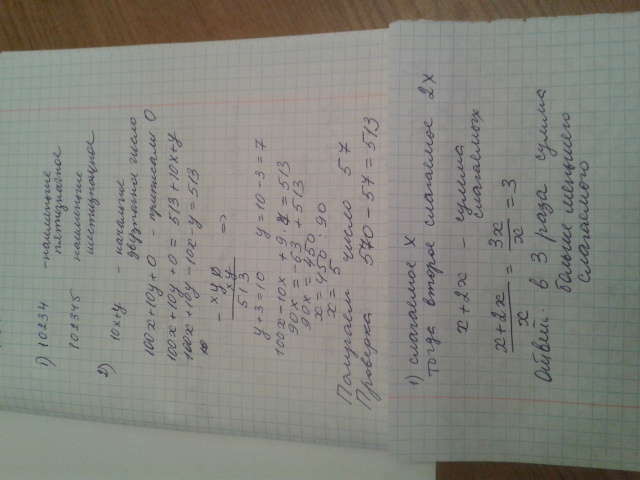 1) 10234 наименьшее
пятизначное
102345 наименьшее
шестизначное
2) 10x+y - начальное
двузначное число
100x+10y+0 - приписали 0
100x+10y+0 = 513+10x+y
100x+10y-10x-y=513
- xy0
xy
513
=>
y+3=10 y=10-3=7
100x-10x+9·7=513
90x=-63+513
90x=450
x=450:90
x=5
Получаем число 57
Проверка 570-57=513
1) слагаемое x
тогда второе слагаемое 2x
x+2x - сумма
слагаемых
x+2x / x = 3x / x = 3
Ответ: в 3 раза сумма
больше меньшего
слагаемого